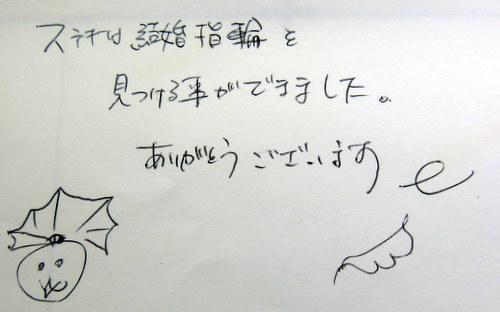 ステキな結婚指輪を
見つける事ができました。
ありがとうございます